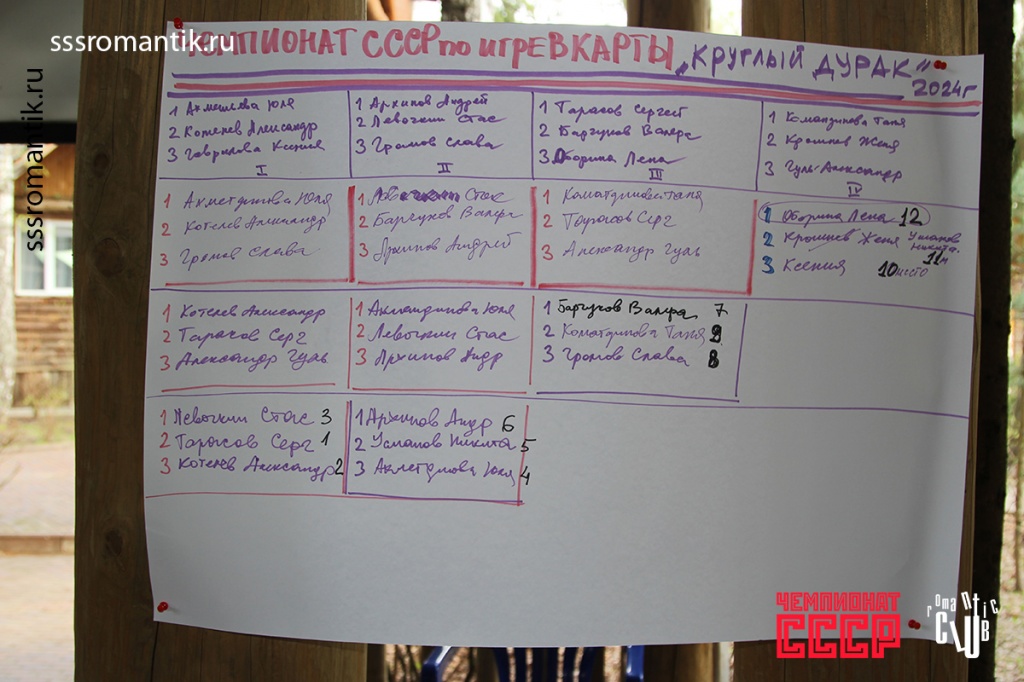 sssromantik.ru
sssromantik.ru
ЧЕМПИОНАТ СССР по игре В КАРТЫ „КРУГЛЫЙ ДУРАК"
2024г
1 Юля
2 Котелев Александр
3 Гаврилова Ксения
I
1 Архипов Андрей
2 Левочкин Стас
3 Громов Слава
II
1 Тарасов Сергей
2 Барчуков Валера
3 Оборина Лена
III
1 Таня
2 Женя
3 Гуль Александр
IV
1 Ахметдинова Юля
2 Котелев Александр
3 Громов Слава
1 Стас
2 Барчуков Валера
3 Архипов Андрей
1 Таня
2 Тарасов Серг
3 Александр Гуль
1 Оборина Лена 12
2 Женя Усманов Никита 11м
3 Ксения 10 место
1 Котелев Александр
2 Тарасов Серг
3 Александр Гуль
1 Юля
2 Левочкин Стас
3 Архипов Андр
1 Барчуков Валера 7
2 Таня 9
3 Громов Слава 8
1 Левочкин Стас 3
2 Тарасов Серг 1
3 Котелев Александр 2
1 Архипов Андр 6
2 Усманов Никита 5
3 Ахметдинова Юля 4
ЧЕМПИОНАТ
СССР
romantic
CLUB